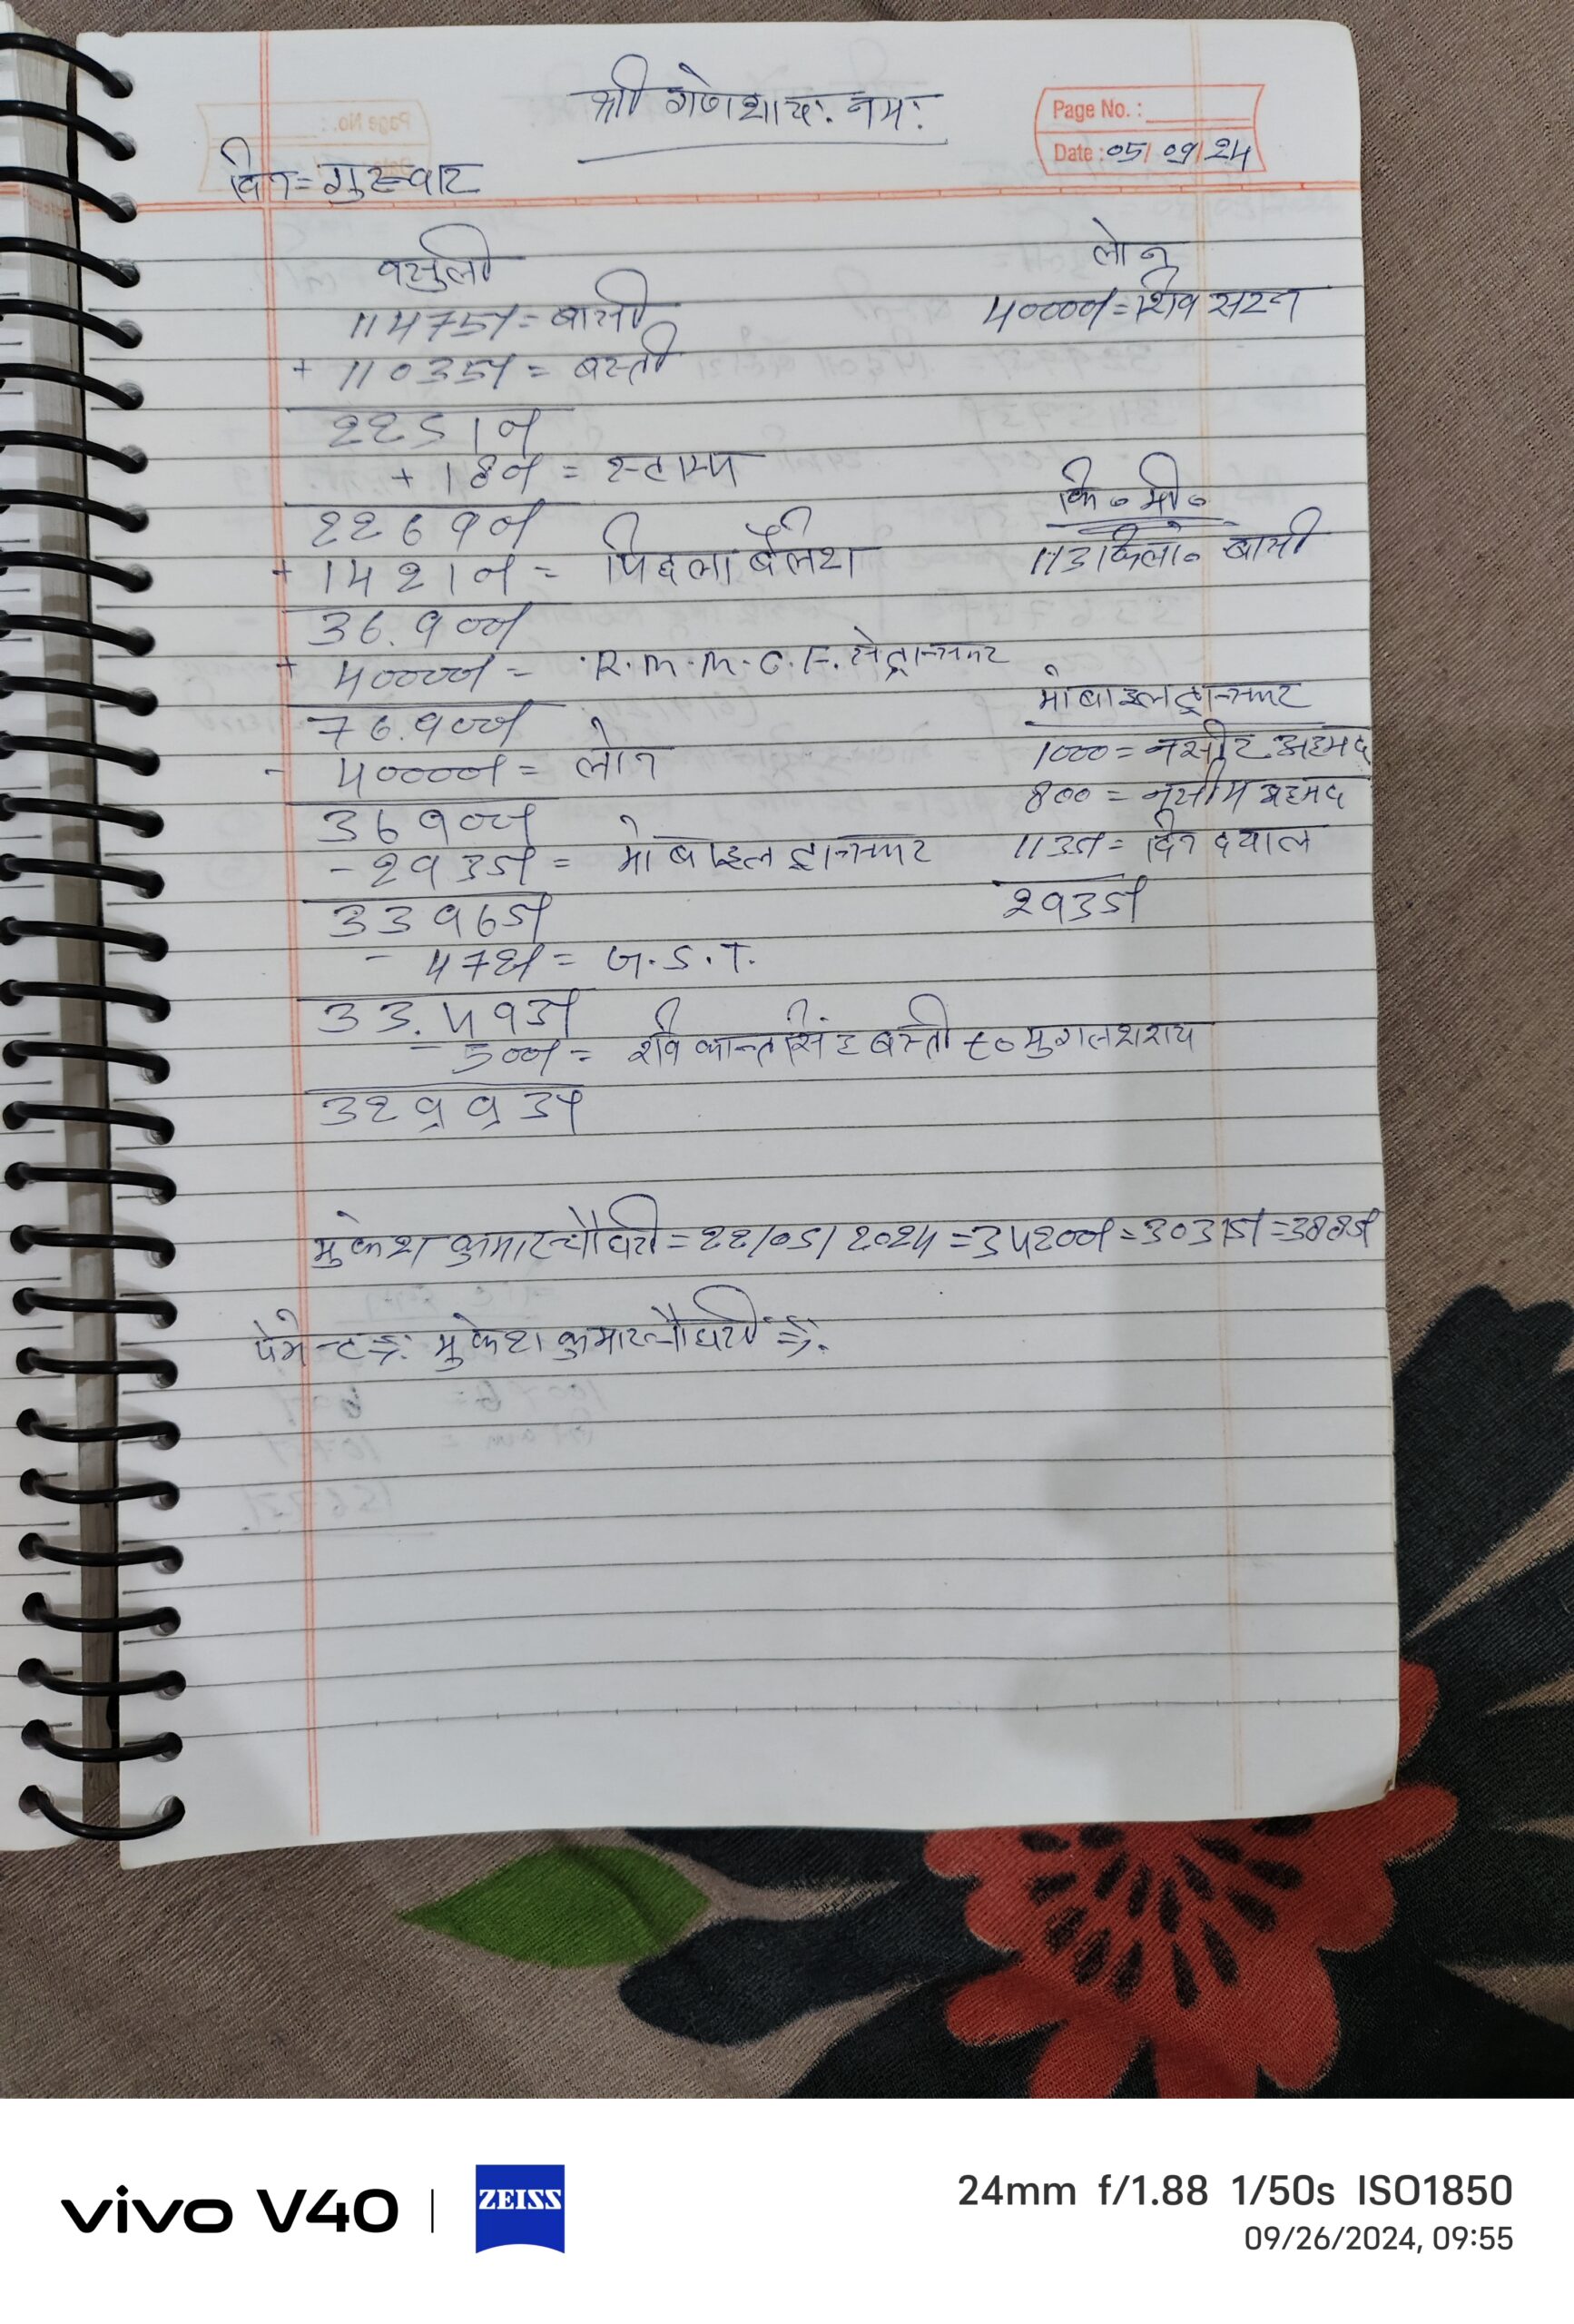 श्री गणेशायः नमः
Page No. :
Date : 05/09/24
दिन = गुरुवार
वसुली
11475/- = बासी
+ 11035/- = बस्ती
22510/-
+ 180/- = स्टाम्प
22690/-
+ 14210/- = पिछला बैलेश
36.900/-
+ 40000/- = R.M.M.C.F. से ट्रान्सफर
76.900/-
- 40000/- = लोन
36900/-
- 2935/- = मोबाइल ट्रान्सफर
33965/-
- 472/- = G.S.T.
33.493/-
- 500/- = रवि कान्त सिंह बस्ती टू मुगलशराय
32993/-
लोन
40000/- = शिव सरन
कि॰मी॰
113 किलो॰ बासी
मोबाइल ट्रान्सफर
1000 = नसीर अहमद
800 = नसीम अहमद
1135/- = दिन दयाल
2935/-
मुकेश कुमार चौधरी = 22/05/2024 = 34200/- = 30315/- = 3885/-
पेमेन्ट मुकेश कुमार चौधरी
vivo V40 | ZEISS
24mm f/1.88 1/50s ISO1850
09/26/2024, 09:55